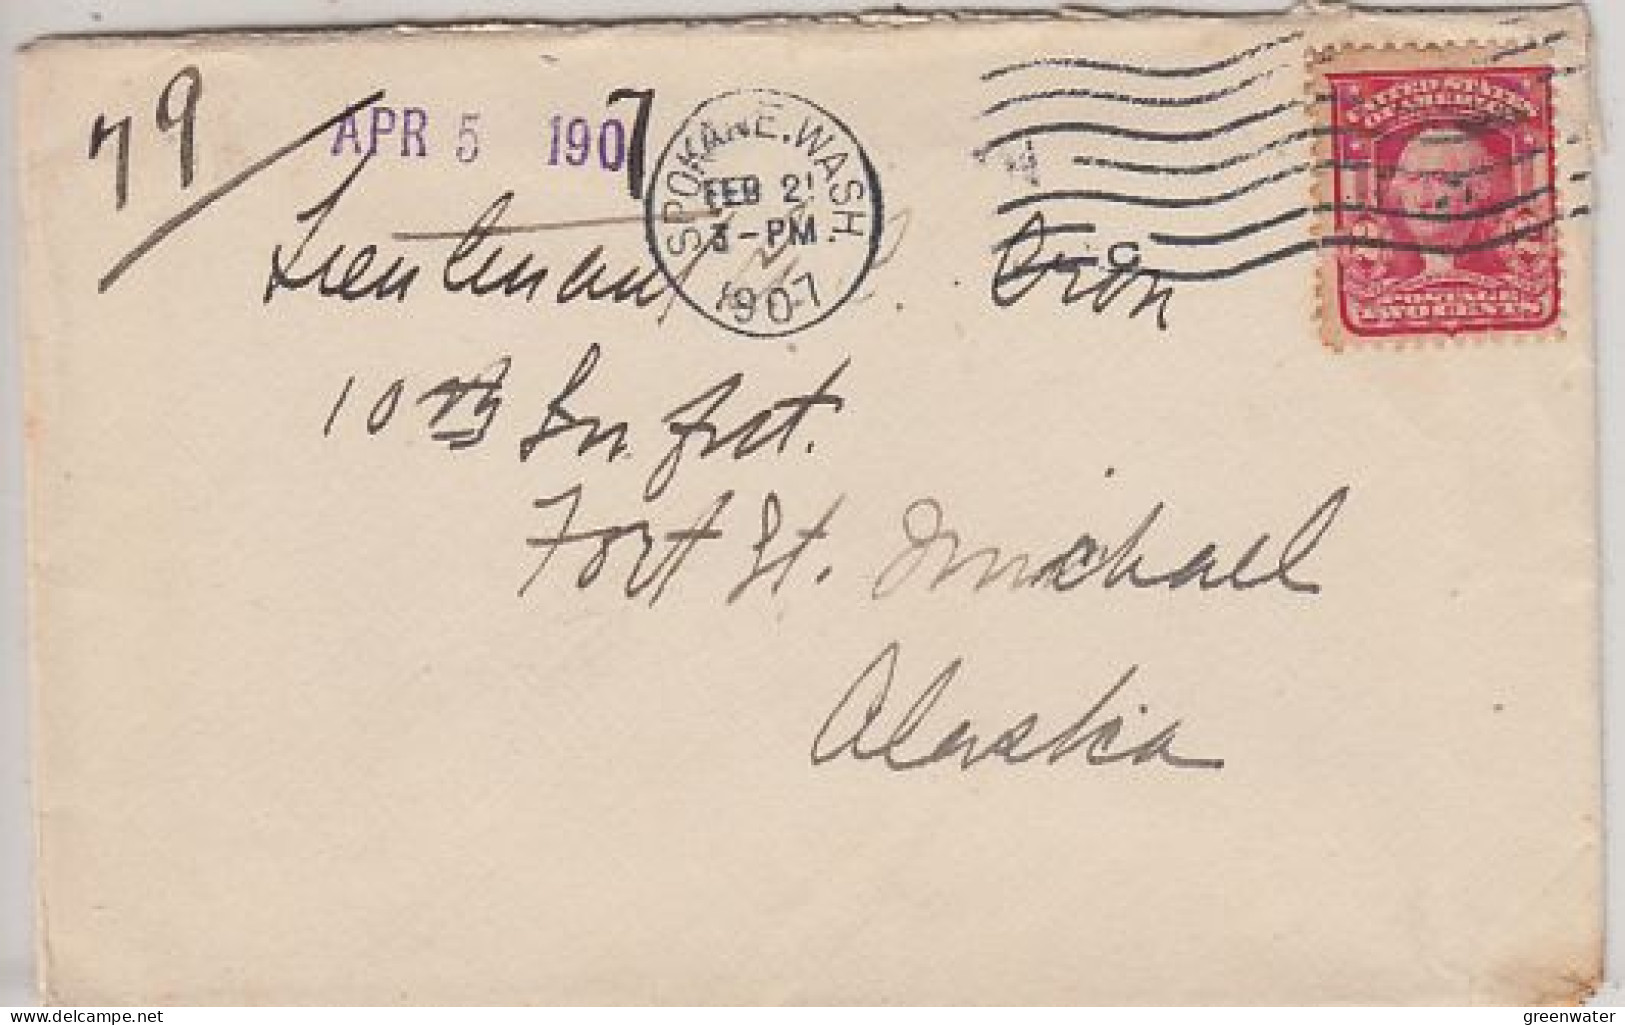 79
APR 5 1907
SPOKANE, WASH.
FEB 21
3-PM
1907
UNITED STATES
OF AMERICA
POSTAGE
TWO CENTS
Lieutenant
10th Infxt.
Fort St. Michael
Alaska
delcampe.net
greenwater